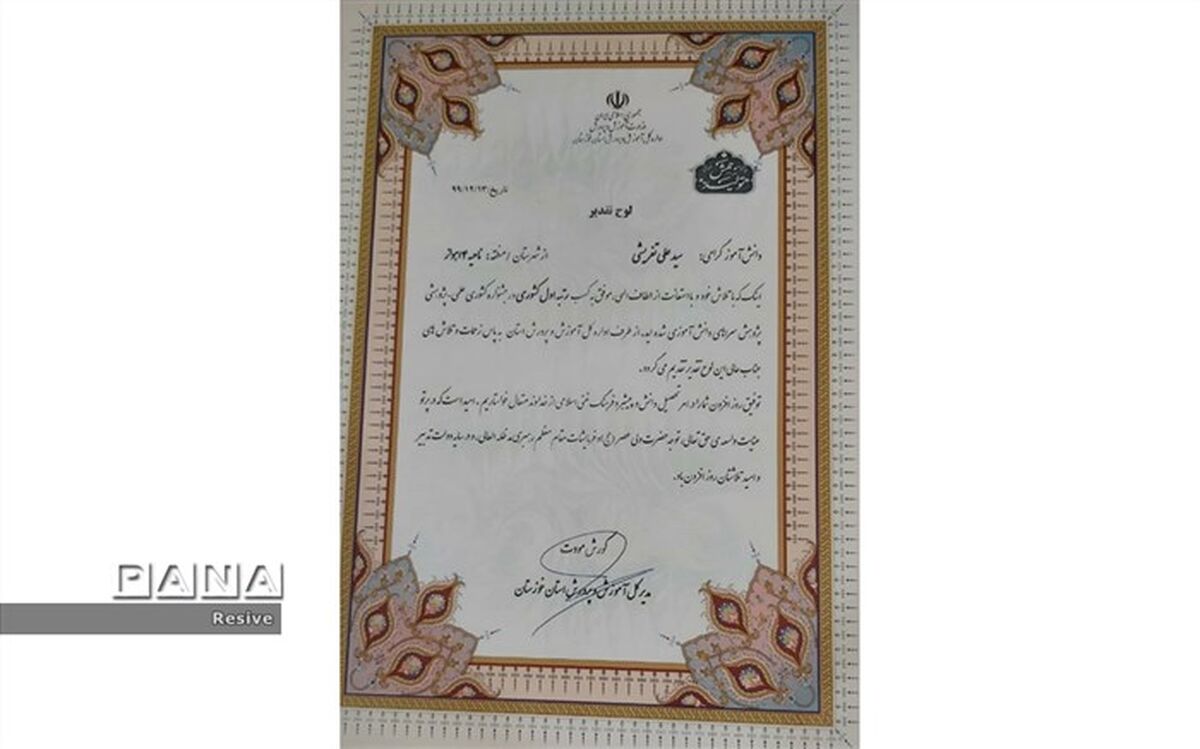 جمهوری اسلامی ایران
وزارت آموزش و پرورش
اداره کل آموزش و پرورش استان خوزستان
جهش تولید
تاریخ: ۹۹/۱۲/۱۳
لوح تقدیر
دانش آموز گرامی: سید علی تفریشی از شهرستان / منطقه: ناحیه ۴ اهواز
اینک که با تلاش خود و با استعانت از الطاف الهی، موفق به کسب رتبه اول کشوری در جشنواره کشوری علمی-پژوهشی
پژوهش سراهای دانش آموزی شده اید، از طرف اداره کل آموزش و پرورش استان به پاس زحمات و تلاش های
جناب عالی این لوح تقدیر تقدیم می گردد.
توفیق روز افزون شما را در امر تحصیل دانش و پیشبرد فرهنگ غنی اسلامی از خداوند متعال خواستاریم. امید است که در پرتو
عنایت واسعه ی حق تعالی، توجه حضرت ولی عصر (عج) و فرمایشات مقام معظم رهبری مد ظله العالی، و در سایه دولت تدبیر
و امید تلاشتان روز افزون باد.
کورش مودت
مدیر کل آموزش و پرورش استان خوزستان
PANA
Resive